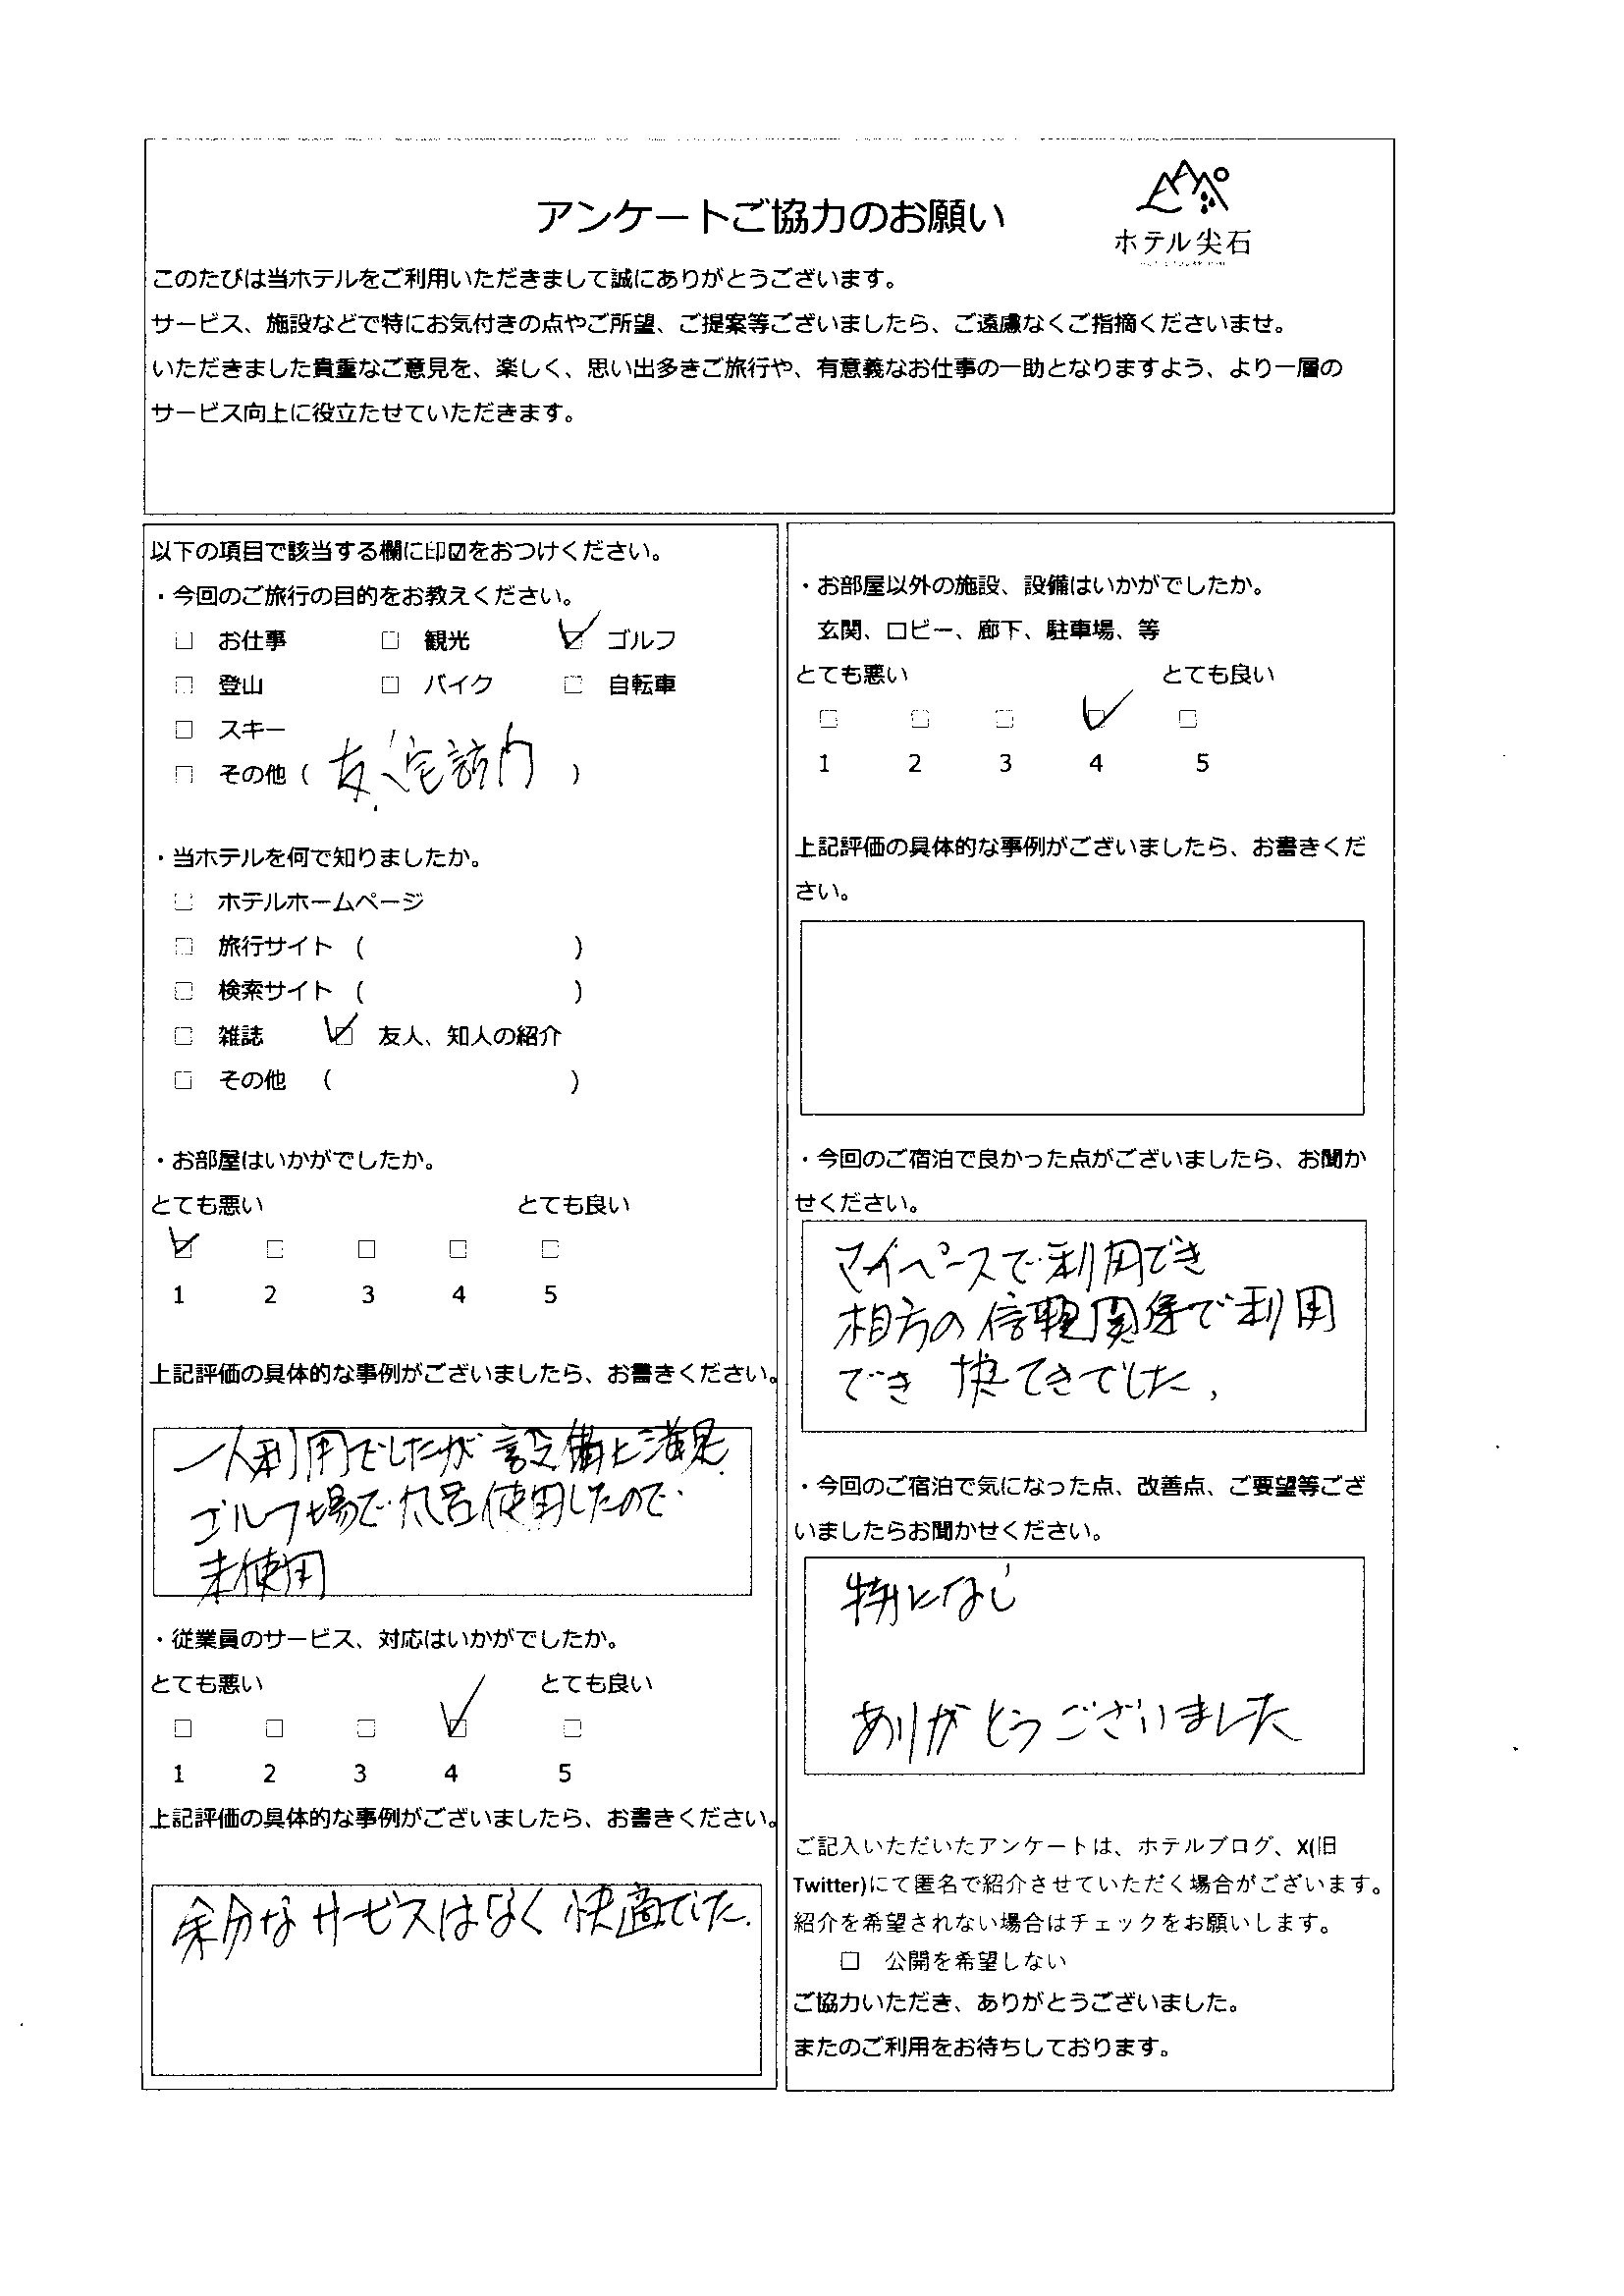 アンケートご協力のお願い
ホテル尖石
このたびは当ホテルをご利用いただきまして誠にありがとうございます。
サービス、施設などで特にお気付きの点やご所望、ご提案等ございましたら、ご遠慮なくご指摘くださいませ。
いただきました貴重なご意見を、楽しく、思い出多きご旅行や、有意義なお仕事の一助となりますよう、より一層の
サービス向上に役立たせていただきます。
以下の項目で該当する欄に印☑をおつけください。
・今回のご旅行の目的をお教えください。
□ お仕事 □ 観光 ☑ ゴルフ
□ 登山 □ バイク □ 自転車
□ スキー
□ その他 ( 友人宅訪問 )
・当ホテルを何で知りましたか。
□ ホテルホームページ
□ 旅行サイト ( )
□ 検索サイト ( )
□ 雑誌 ☑ 友人、知人の紹介
□ その他 ( )
・お部屋はいかがでしたか。
とても悪い とても良い
☑ □ □ □ □
1 2 3 4 5
上記評価の具体的な事例がございましたら、お書きください。
一人利用でしたが設備に満足
ゴルフ場で風呂使用したので
未使用
・従業員のサービス、対応はいかがでしたか。
とても悪い とても良い
□ □ □ ☑ □
1 2 3 4 5
上記評価の具体的な事例がございましたら、お書きください。
余分なサービスはなく快適でした.
・お部屋以外の施設、設備はいかがでしたか。
玄関、ロビー、廊下、駐車場、等
とても悪い とても良い
□ □ □ ☑ □
1 2 3 4 5
上記評価の具体的な事例がございましたら、お書きくだ
さい。
・今回のご宿泊で良かった点がございましたら、お聞か
せください。
マイペースで利用でき
相方の信頼関係で利用
でき 快てきでした、
・今回のご宿泊で気になった点、改善点、ご要望等ござ
いましたらお聞かせください。
特になし
ありがとうございました
ご記入いただいたアンケートは、ホテルブログ、X(旧
Twitter)にて匿名で紹介させていただく場合がございます。
紹介を希望されない場合はチェックをお願いします。
□ 公開を希望しない
ご協力いただき、ありがとうございました。
またのご利用をお待ちしております。